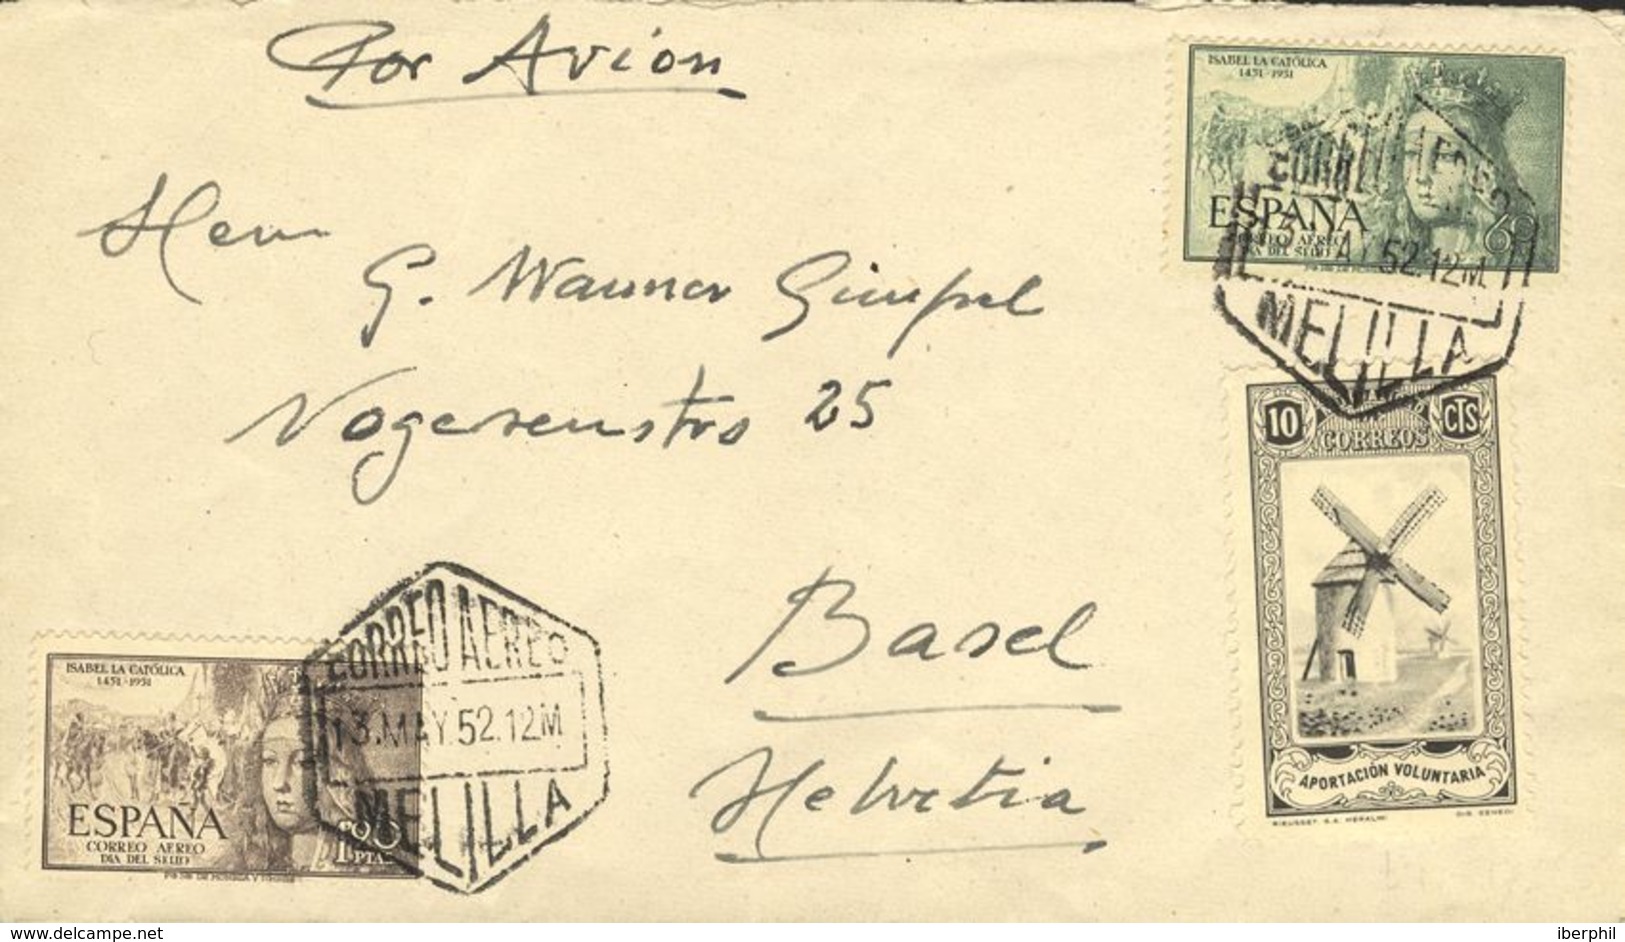 Por Avión
ISABEL LA CATÓLICA
1451-1951
ESPAÑA
60
CORREO AÉREO
DIA DEL SELLO
CORREO AEREO
MAY 52.12M
MELILLA
Herrn
G. Wanner Gimpel
Vogesenstrs 25
Basel
Helvetia
10 CTS
CORREOS
APORTACIÓN VOLUNTARIA
RIEUSSET S.A.
ISABEL LA CATÓLICA
1451-1951
ESPAÑA
CORREO AÉREO
DIA DEL SELLO
PTAS
CORREO AEREO
13.MAY.52.12M
MELILLA
delcampe.net
iberphil